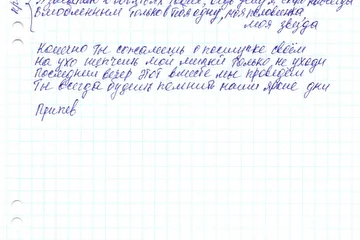 Влюбленный только в тебя одну, моя половинка
моя звезда
Конечно ты сожалеешь о поступке своём
На ухо шепчешь мой милый только не уходи
Последний вечер этот вместе мы проведём
Ты всегда будешь помнить наши яркие дни
Припев